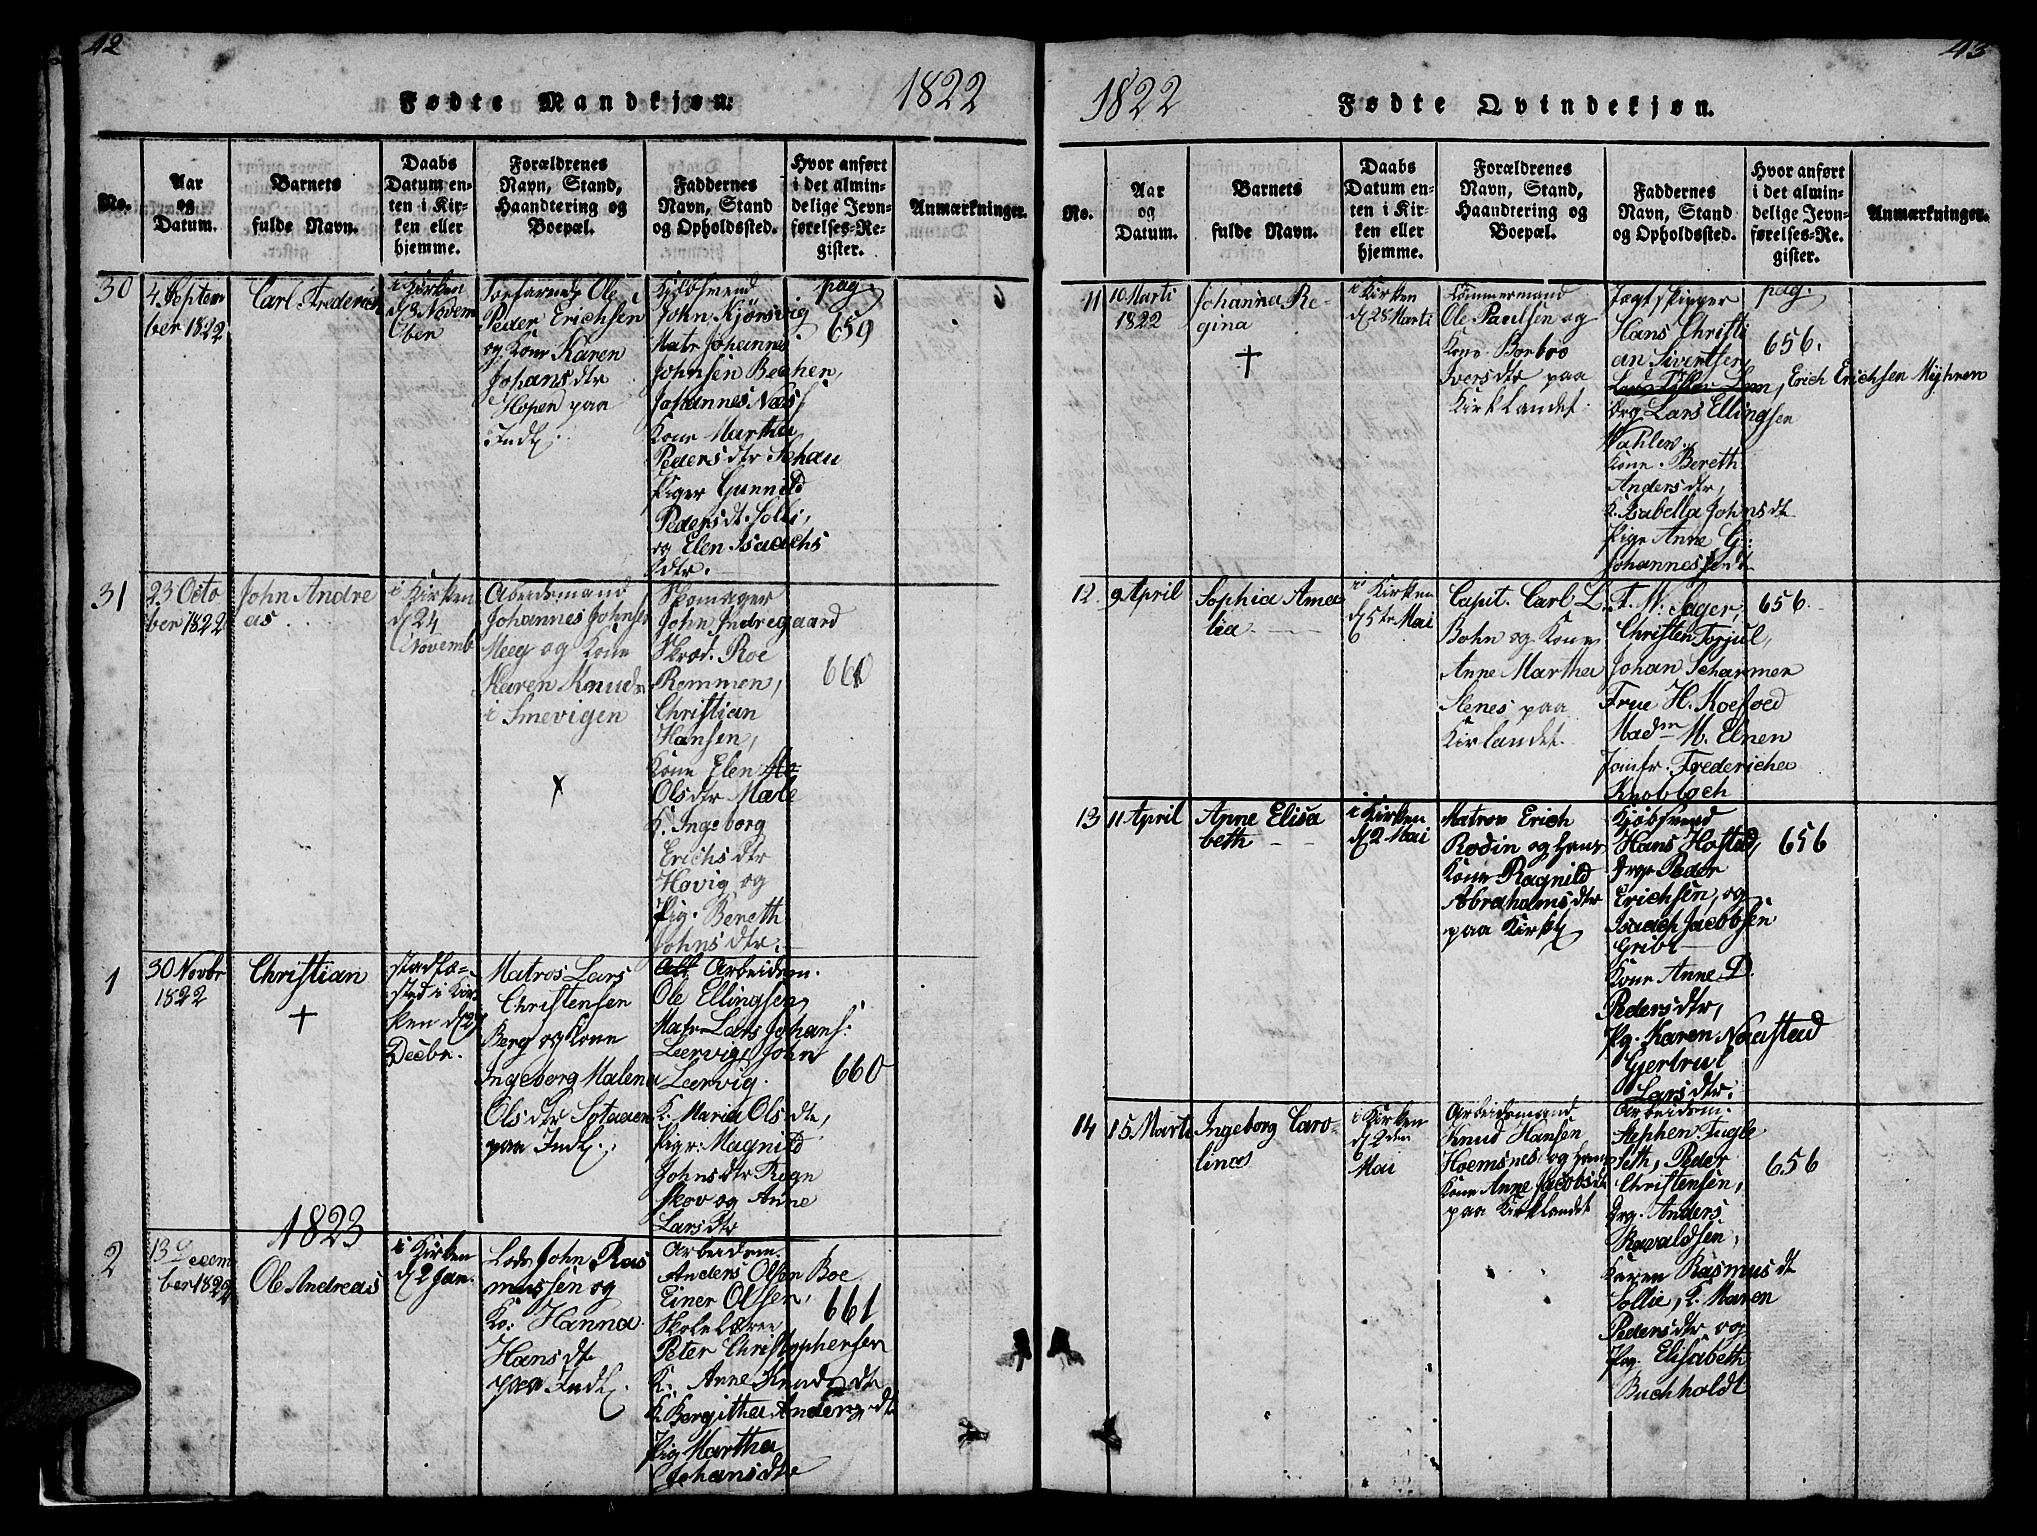 42
Fødte Mandkjøn.
1822
No.
Aar
og
Datum.
Barnets
fulde Navn.
Daabs
Datum en-
ten i Kir-
ken eller
hjemme.
Forældrenes
Navn, Stand,
Haandtering og
Boepæl.
Faddernes
Navn, Stand
og Opholdssted.
Hvor anført
i det almin-
delige Jevn-
førelses-Re-
gister.
Anmærkninger.
30
4. Septem
ber 1822
Carl Frederich
i Kirken
d 3 Novem
ber
Ole
Peder Erichsen
og Kone Karen
Johansdtr
Hopen paa
Indl.
John Kjørsvig
Matr Johannes
Johnsen Bechen,
Johannes Næs
Kone Martha
Pedersdtr Schau
Piger Gunnild
Pedersdt. Solli,
og Elen Isaachs
dtr.
pag.
659
31
23 Octo
ber 1822
John Andre
as
i Kirken
d 24
Novemb
Abeidsmand
Johannes Johnsen
Meeg og Kone
Karen Knuds
i Smevigen
Skomager
John Indregaard
Skrod. Roe
Remmen,
Christian
Hansen,
Kone Elen
Olsdtr Mæle
K. Ingeborg
Erichsdtr
Hovig og
Pig. Bereth
Johnsdtr.
660
1
30 Novbr
1822
Christian
stadfæ-
sted i Kir
ken d 27
Decbr.
Matros Lars
Christensen
Berg og Kone
Ingeborg Malena
Olsdtr
paa Indl.
Arbeidsm.
Ole Ellingsen,
Matr Lars Johans.
Leervig John
Leervig.
K. Maria Olsdt,
Pigr. Magnild
Johnsdtr Rogn
skov og Anne
Larsdtr
660
1823
2
13 Decem
ber 1822
Ole Andreas
i Kirken
d 2 Jan.
Lods John Ras
mussen og
Ko: Hanna
Hansdt
paa Indl.
Arbeidsm.
Anders Olsen Boe
Einer Olsen,
Skolelærer
Peter Christophersen
K. Anne Knudsdt
K. Bergitha Andersdt
Pig Martha
Johansdtr
661
43
1822
Fødte Qvindekjøn.
No.
Aar
og
Datum.
Barnets
fulde Navn.
Daabs
Datum en-
ten i Kir-
ken eller
hjemme.
Forældrenes
Navn, Stand,
Haandtering og
Boepæl.
Faddernes
Navn, Stand
og Opholdssted.
Hvor anført
i det almin-
delige Jevn-
førelses-Re-
gister.
Anmærkninger.
11
10 Marti
1822
Johanna Re-
gina
i Kirken
d 28 Marti
Tømmermand
Ole Paulsen og
Kone Borbro
Iversdtr paa
Kirklandet.
Jagtskipper
Hans Christi
an Sivertsen,
Erich Erichsen Myhren
Drg Lars Ellingsen
Vahlen.
Kone. Bereth
Andersdtr,
K. Isabella Johnsdt
Pige Anne G.
Johannesendt
pag.
656.
12
9 April
Sophia Ama
lia
i Kirken
d 5te Mai
Capit. Carl L.
Bohn og Kone
Anne Martha
Stenes paa
Kirlandet.
F. W. Sager,
Christen Torjul,
Johan Scharmen
Frue H. Koefoed
Madm M. Elnen
Jomfr. Fredericha
Knobloch
656.
13
11 April
Anne Elisa
beth
i Kirken
d 2 Mai
Matros Erich
Rodin og Hans
Kone Ragnild
Abrahamsdtr
paa Kirkl
Kjøbsvend
Hans Hostad,
Drge Peder
Erichsen, og
Isaach Jacobsen
Gribt
Kone Anne D.
Pedersdtr,
Pg. Karen Naastad
Gjertrul
Larsdtr.
656
14
15 Marti
Ingeborg Caro-
lina
i Kirken
d 2den
Mai
Arbeidsmand
Knud Hansen
Hoemsnes og Hans
Kone Anne Jacobsdt
paa Kirklandet
Arbeidsm.
Stephen Fugle
seth, Peder
Christensen,
Drg. Anders
Ravaldsen,
Karen Rasmusdt
Sollie, K. Maren
Pedersdtr og
Pig. Elisabeth
Buchholdt
656